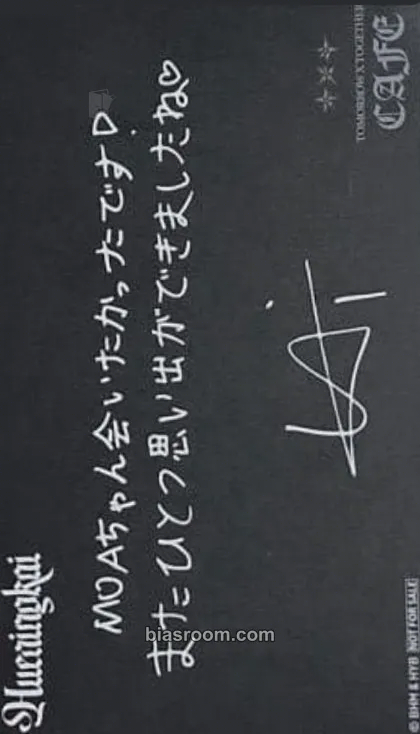 Hueningkai
MOAちゃん会いたかったです♡
またひとつ思い出ができましたね♡
TOMORROW X TOGETHER
CAFE
© BHM & HYB NOT FOR SALE
biasroom.com